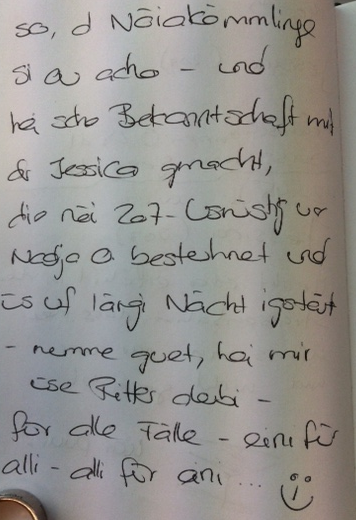 so, d Nöiakömmlinge
si au acho - und
hei scho Bekanntschaft mit
dr Jessica gmacht,
die nöi 207-
Nadja a bestechnet und
üs uf längi Nächt igstellt
- nemme guet, hei mir
üse Ritter derbi -
för alle Fälle - eini für
alli - alli für eini ... :)